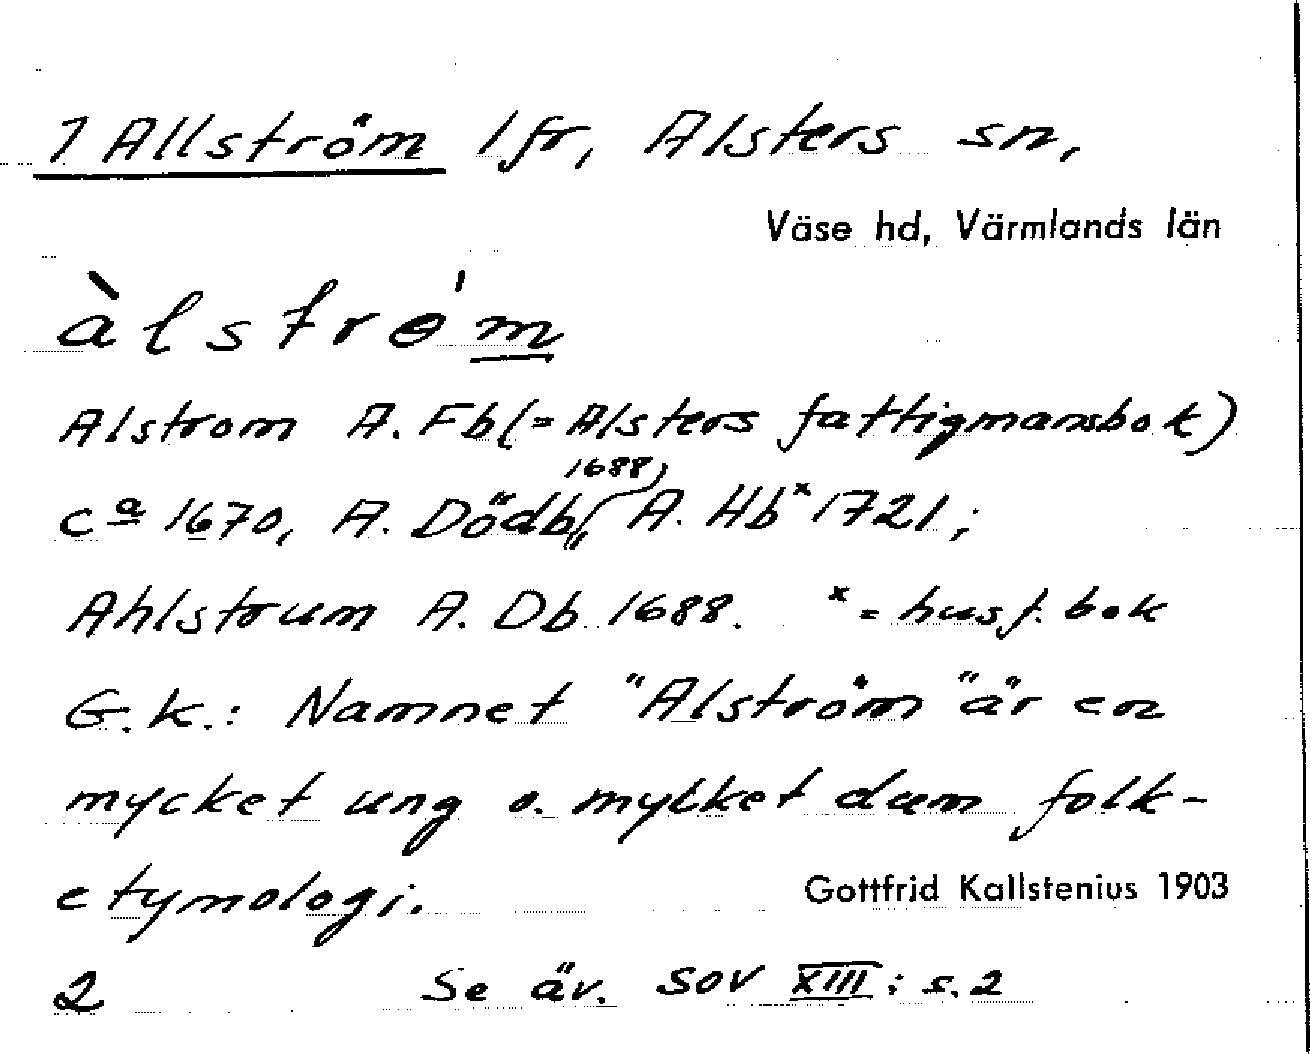 1 Allström 1fr, Alsters sn,
Väse hd, Värmlands län
àlstrө́m
Alstrom A. Fb (= Alsters fattigmansbok)
cª 1670, A. Dödb, 1688, A. Hbˣ 1721;
Ahlstrum A. Db 1688. ˣ = husf. bok
G.K.: Namnet "Alström" är en
mycket ung o. mycket dum folk-
etymologi.
Gottfrid Kallstenius 1903
2 Se äv. SOV XIII: s. 2